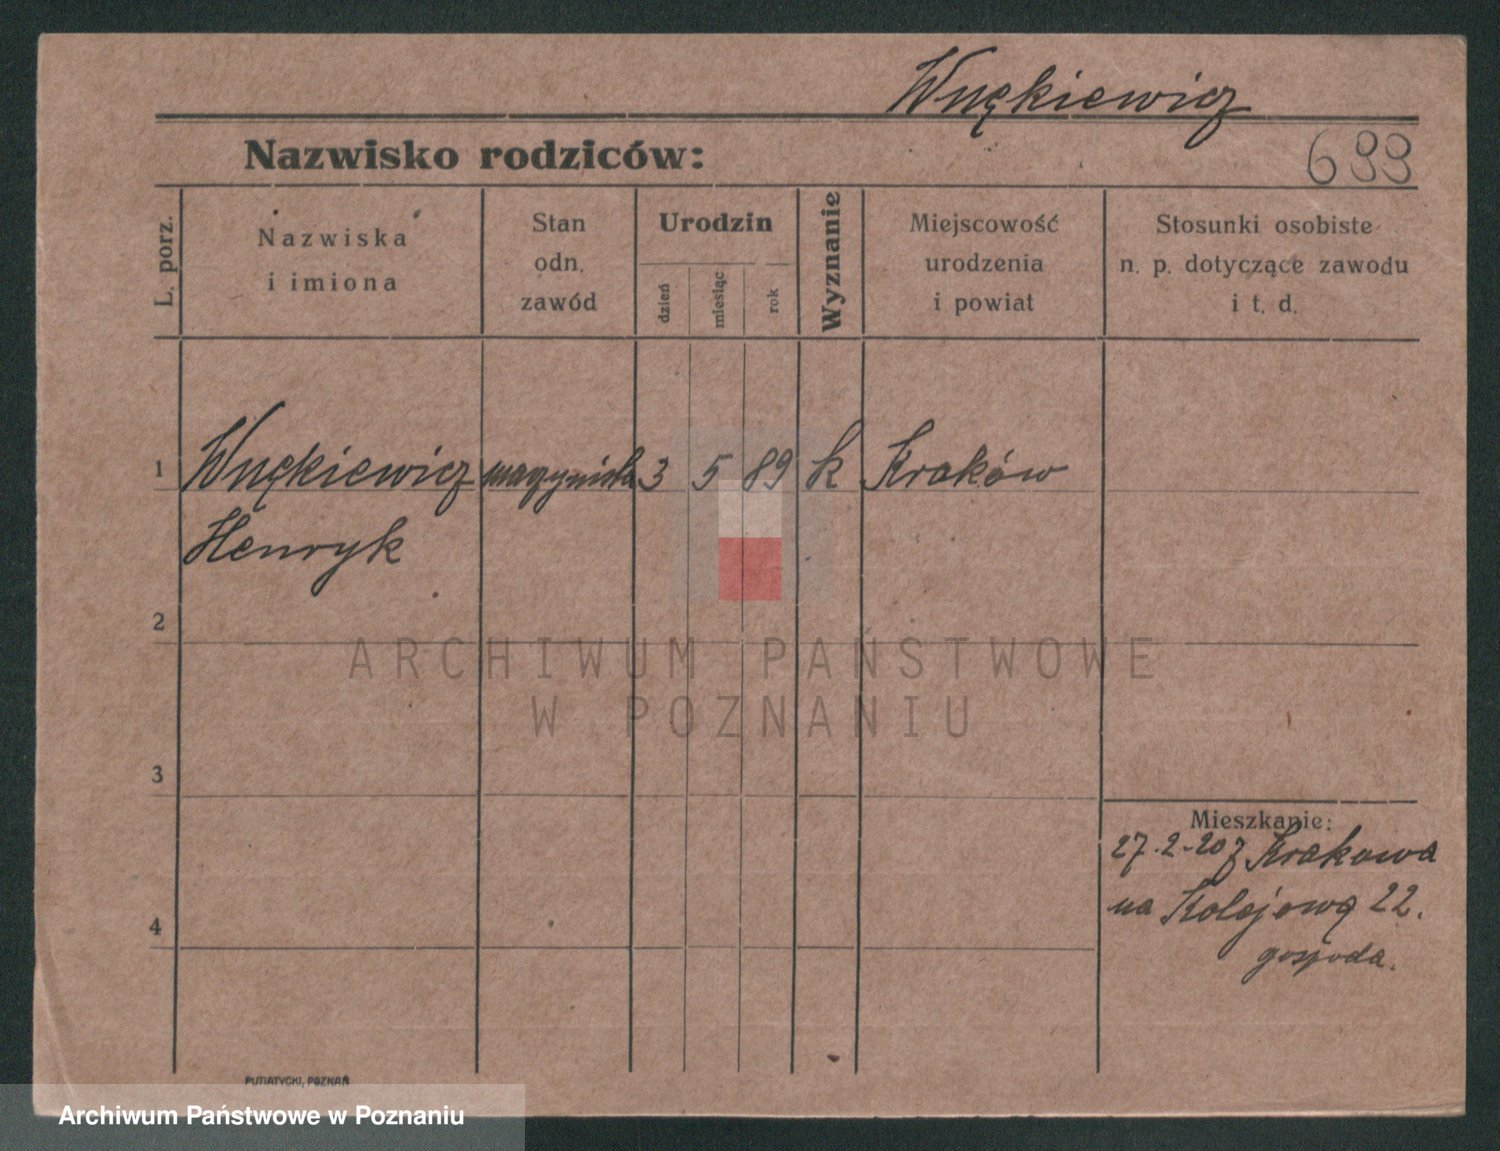 Wnękiewicz
Nazwisko rodziców:
699
L. porz.
Nazwiska
i imiona
Stan
odn.
zawód
Urodzin
dzień
miesiąc
rok
Wyznanie
Miejscowość
urodzenia
i powiat
Stosunki osobiste
n. p. dotyczące zawodu
i t. d.
1 Wnękiewicz 3 5 89 k Kraków
Henryk
2
3
4
Mieszkanie:
27.2.20 z Krakowa
na Kolejową 22.
gospoda.
ARCHIWUM PAŃSTWOWE
W POZNANIU
PUTIATYCKI, POZNAŃ
Archiwum Państwowe w Poznaniu